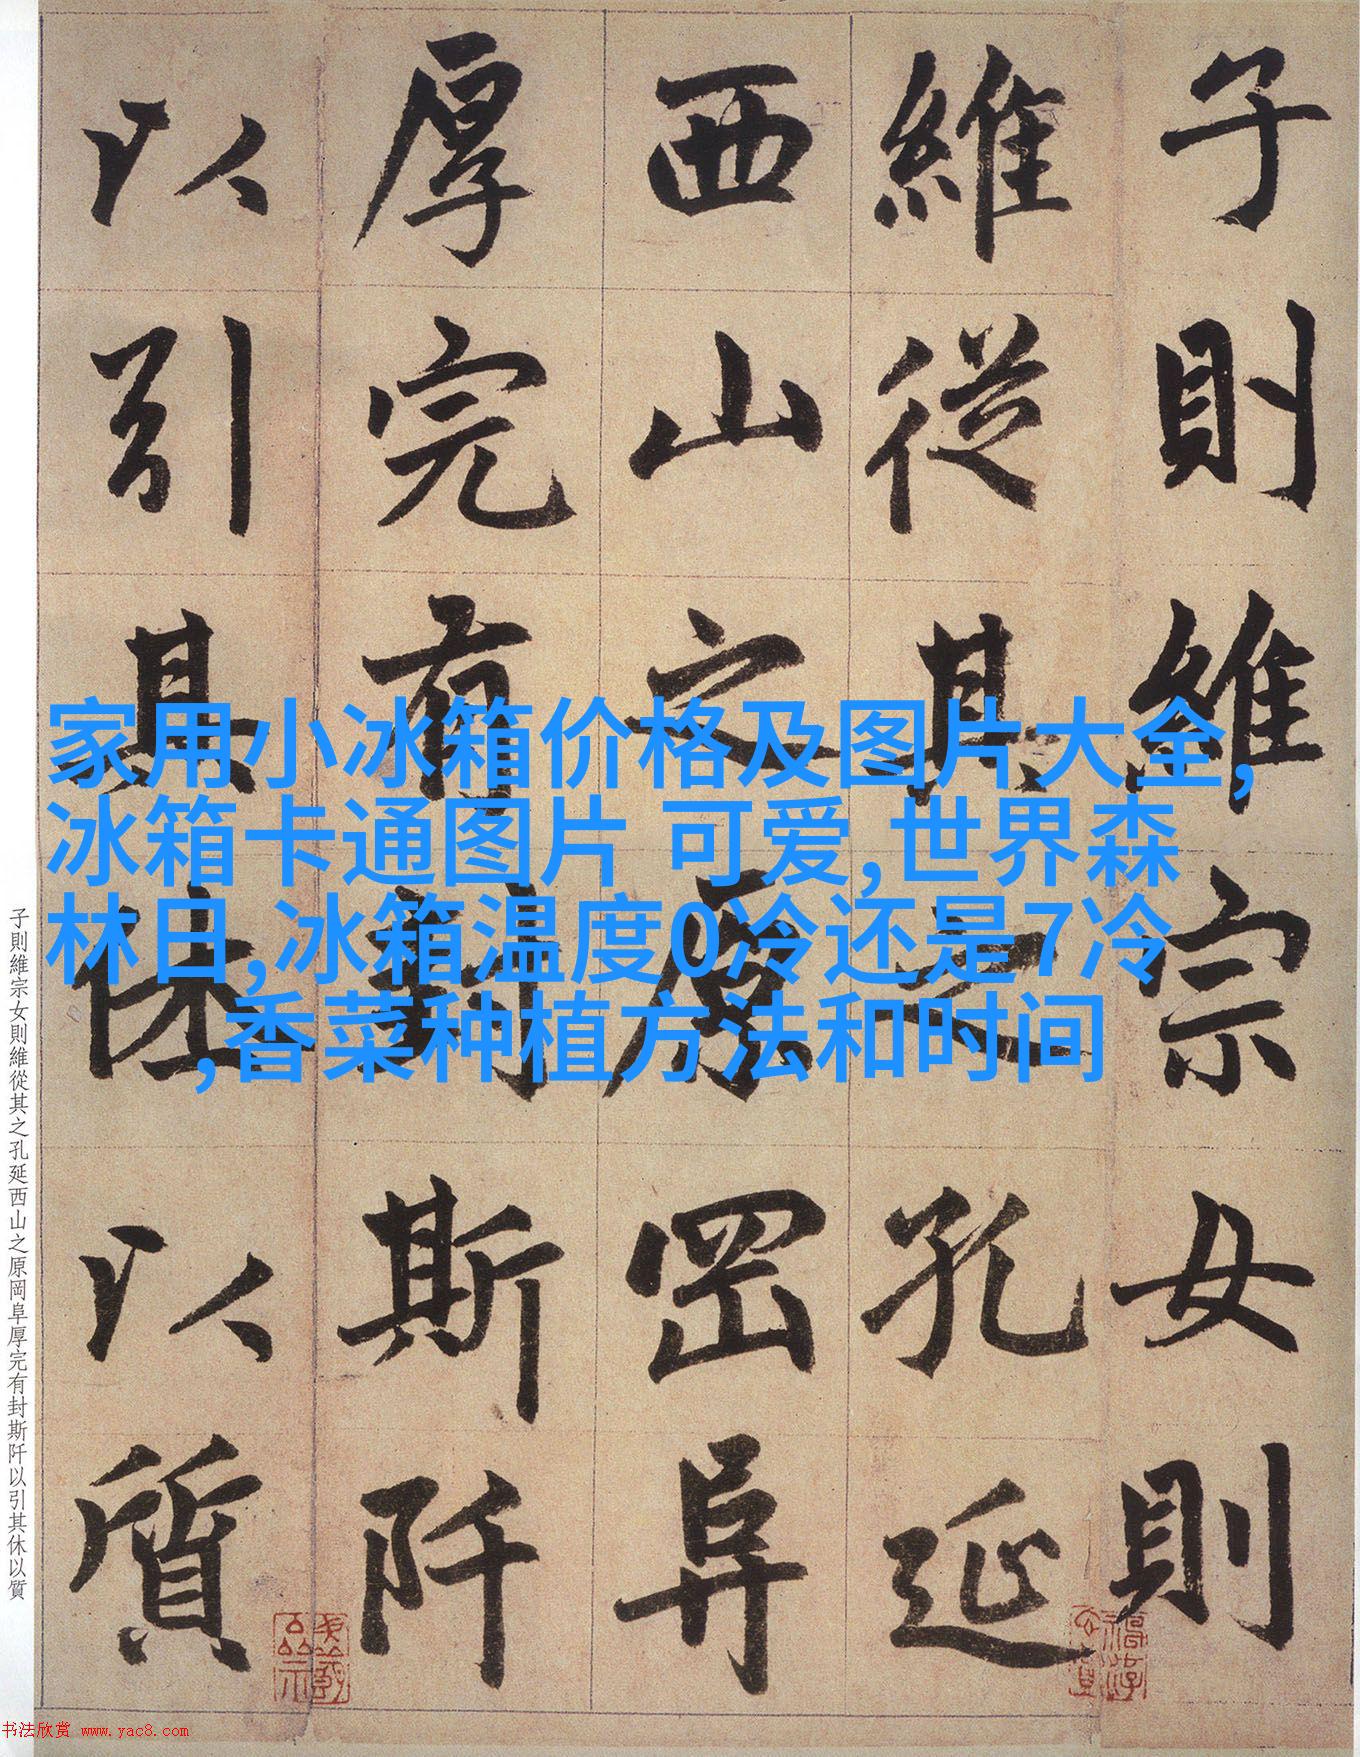 子則維宗女則
維從其之孔延
西山之原岡阜
厚完有封斯阡
以引其休以質
家用小冰箱价格及图片大全,
冰箱卡通图片 可爱,世界森
林日,冰箱温度0冷还是7冷
,香菜种植方法和时间
子則維宗女則維從其之孔延西山之原岡阜厚完有封斯阡以引其休以質
书法欣赏 www.yac8.com